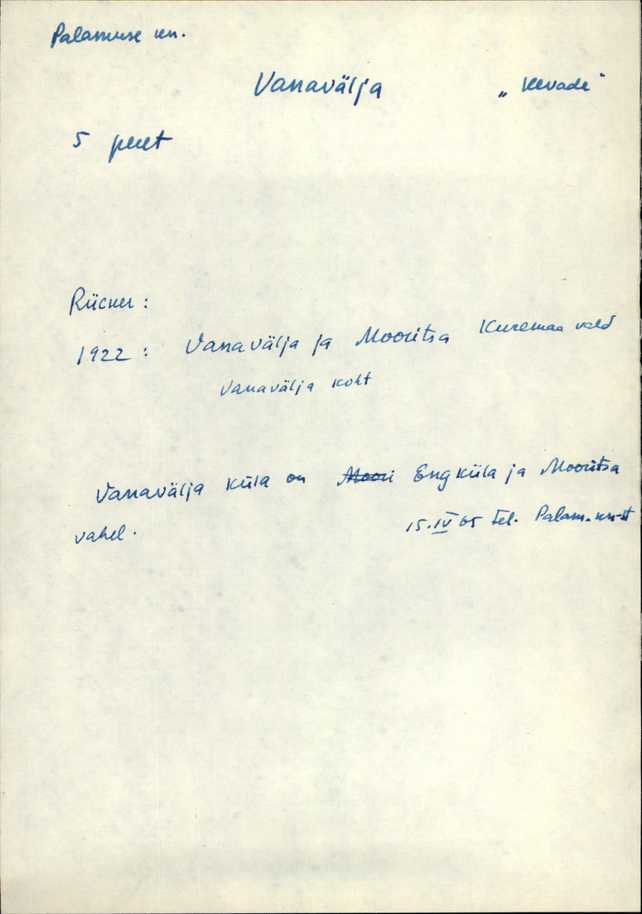 Palamuse kn.
Vanavälja „Kevade"
5 peret
Rücker:
1922: Vanavälja ja Mooritsa Kuremaa vald
Vanavälja koht
Vanavälja küla on Moori Engküla ja Mooritsa
vahel. 15.IV 65 tel. Palam. kn-st